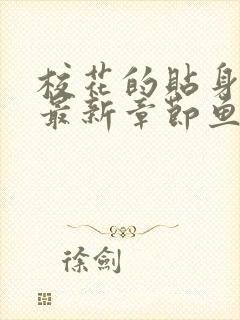 校花的貼身
最新章節魚
徐劍